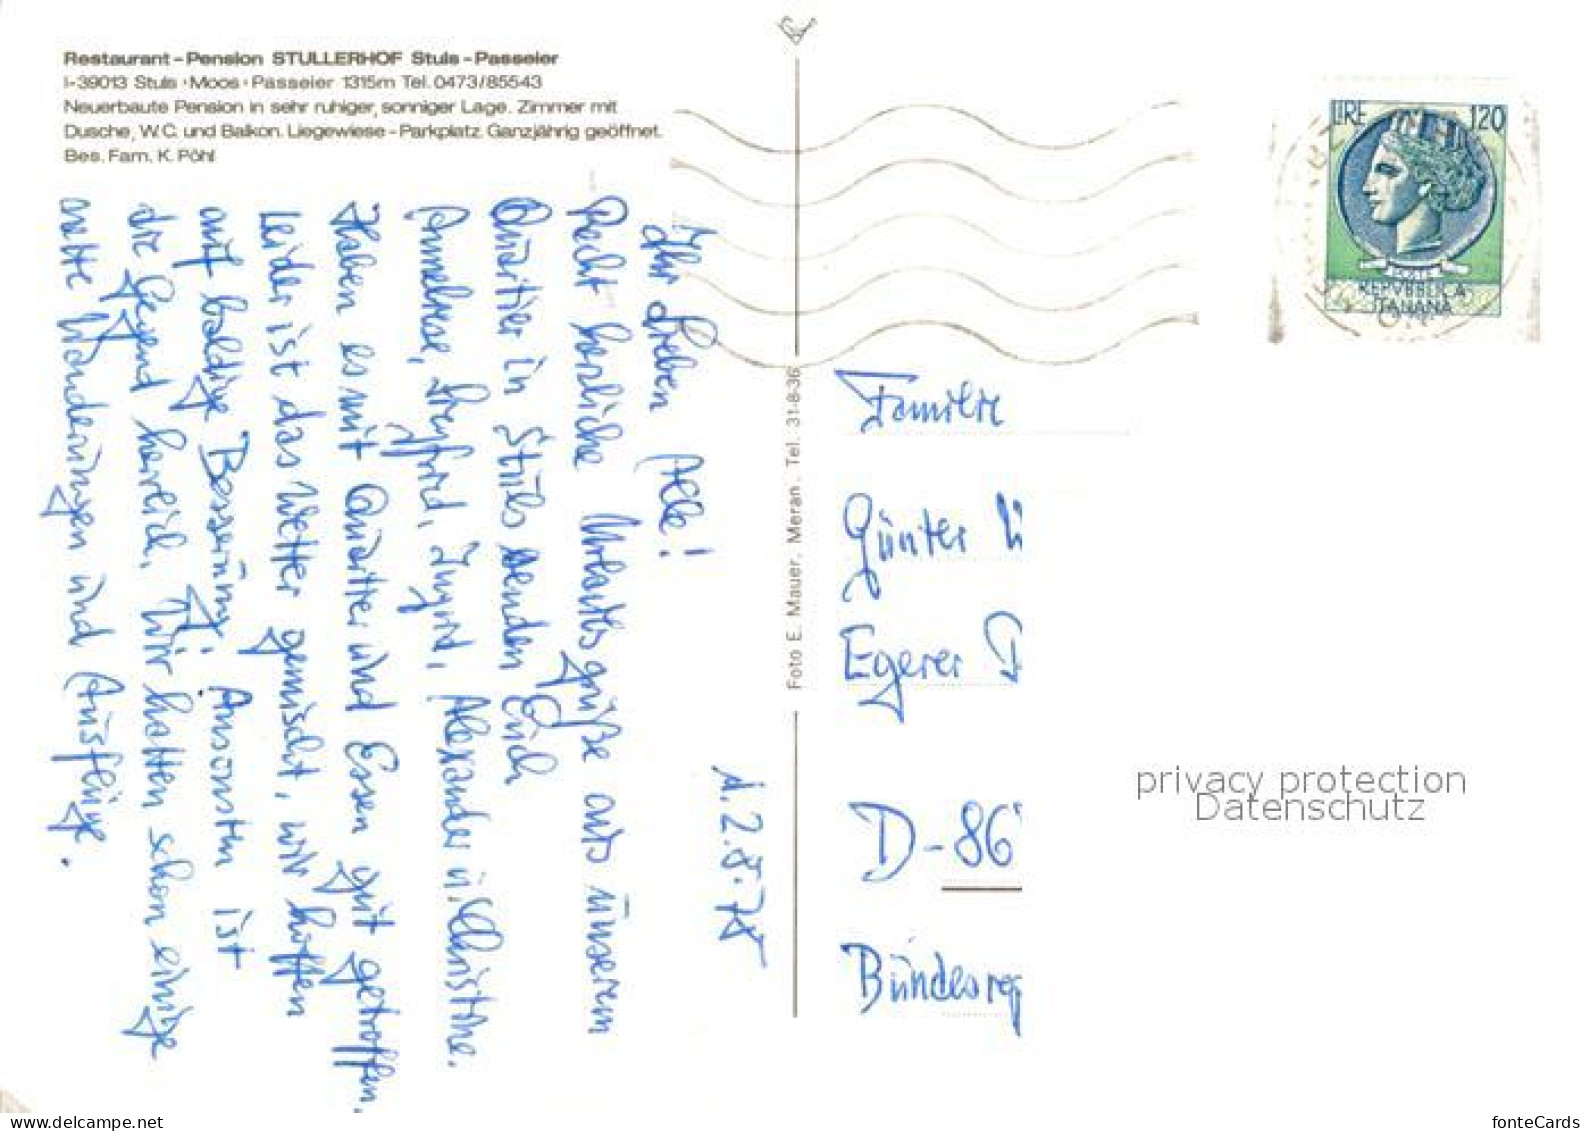 Restaurant-Pension STULLERHOF Stuls-Passeier
I-39013 Stuls·Moos·Passeier 1315m Tel. 0473/85543
Neuerbaute Pension in sehr ruhiger, sonniger Lage. Zimmer mit
Dusche, W.C. und Balkon. Liegewiese-Parkplatz. Ganzjährig geöffnet.
Bes. Fam. K. Pöhl
1.2.8.78
Ihr Lieben Alle!
Recht herzliche Urlaubsgrüße aus unserem
Quartier in Stuls senden Euch
Annelrose, Siegfried, Ingrid, Alexander u. Christine.
Haben es mit Quartier und Essen gut getroffen.
Leider ist das Wetter gemischt, wir hoffen
auf baldige Besserung! Ansonsten ist
die Gegend herrlich. Wir hatten schon einige
nette Wanderungen und Ausflüge.
Foto E. Mauer, Meran, Tel. 31-8-36
LIRE 120
POSTE
REPVBBLICA
ITALIANA
Familie
Günter
Egerer
D-86
Bundesrep
privacy protection
Datenschutz
www.delcampe.net
fonteCards